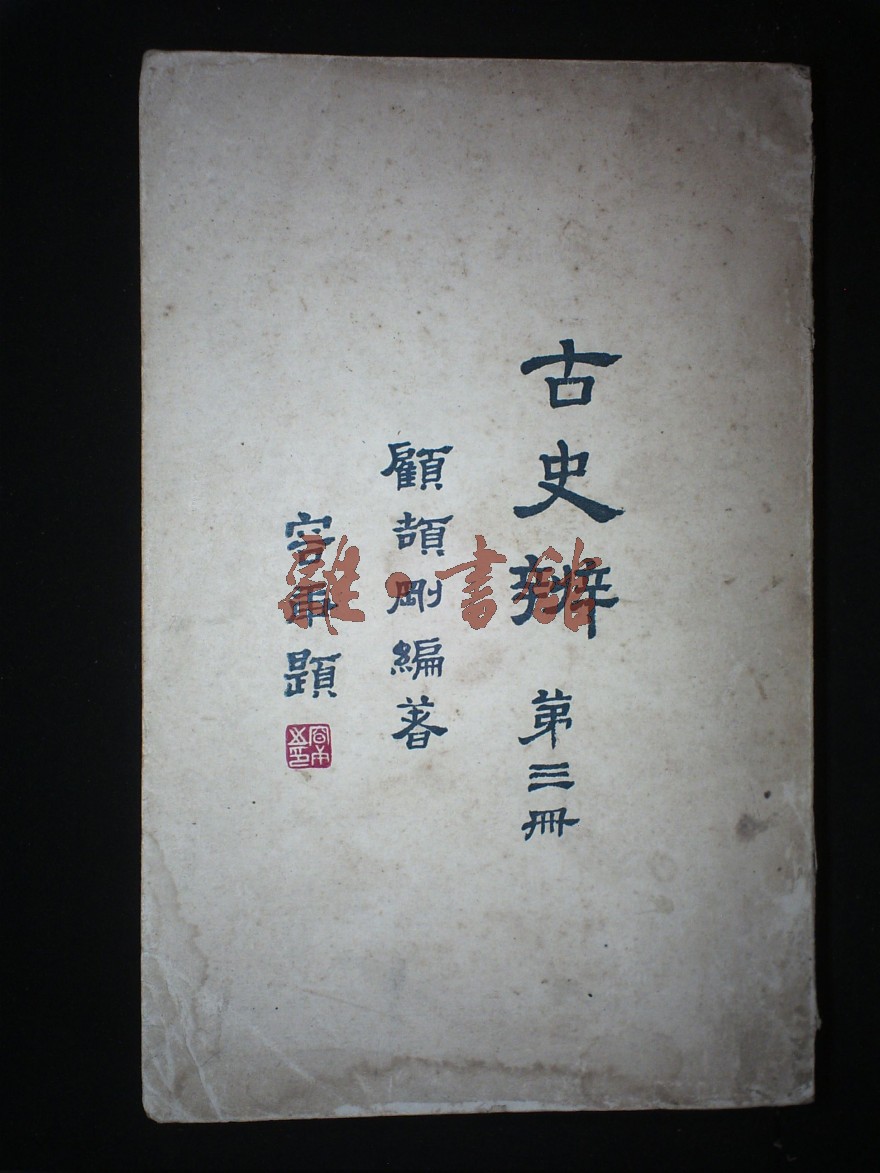 古史辨 第三冊
顧頡剛編著
容庚題
雜·書館